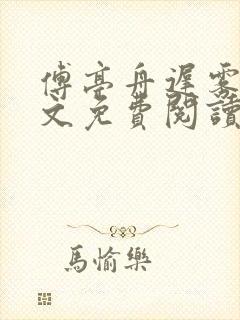 傅亭舟遲霧
文免費閱讀
馬愉樂